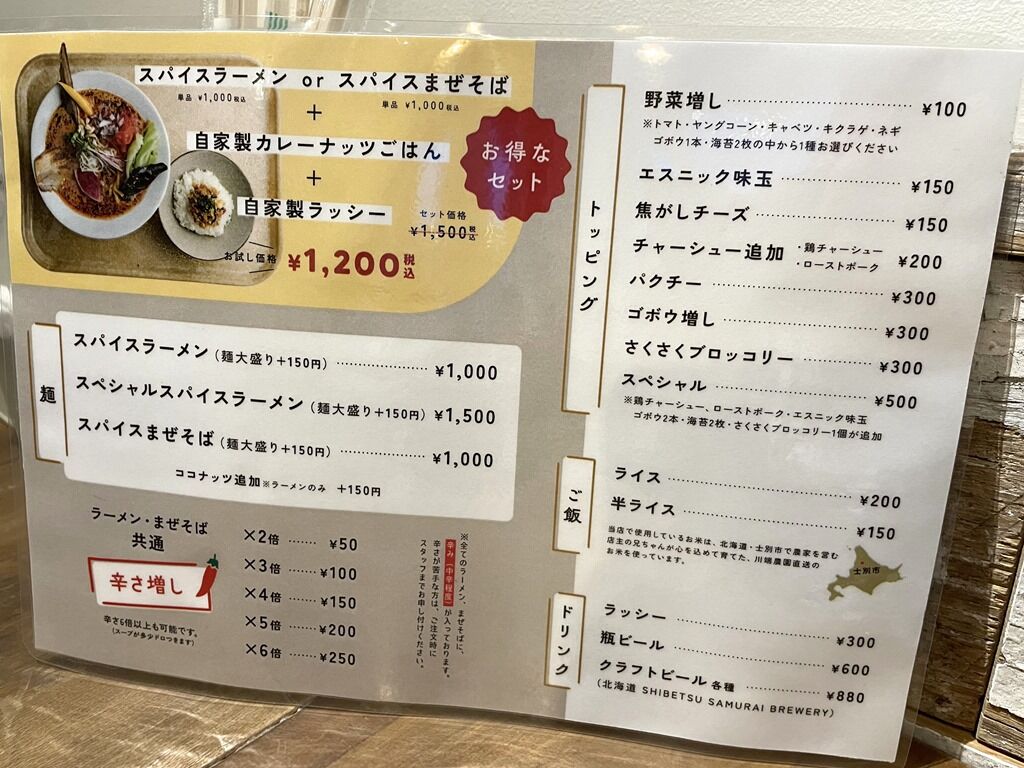 スパイスラーメン or スパイスまぜそば
単品 ¥1,000税込 単品 ¥1,000税込
+
自家製カレーナッツごはん
+
自家製ラッシー
お得な
セット
セット価格
¥1,500税込
お試し価格 ¥1,200税込
麺
スパイスラーメン（麺大盛り+150円）……………¥1,000
スペシャルスパイスラーメン（麺大盛り+150円）¥1,500
スパイスまぜそば（麺大盛り+150円）……………¥1,000
ココナッツ追加※ラーメンのみ +150円
ラーメン・まぜそば
共通
辛さ増し
辛さ6倍以上も可能です。
（スープが多少ドロつきます）
×2倍……¥50
×3倍……¥100
×4倍……¥150
×5倍……¥200
×6倍……¥250
※全てのラーメン、まぜそばに、
辛み（中辛程度）が入っております。
辛さが苦手な方は、ご注文時に
スタッフまでお申し付けください。
トッピング
野菜増し……………¥100
※トマト・ヤングコーン・キャベツ・キクラゲ・ネギ
ゴボウ1本・海苔2枚の中から1種お選びください
エスニック味玉……………¥150
焦がしチーズ……………¥150
チャーシュー追加 ・鶏チャーシュー ・ローストポーク ¥200
パクチー……………¥300
ゴボウ増し……………¥300
さくさくブロッコリー……………¥300
スペシャル……………¥500
※鶏チャーシュー、ローストポーク・エスニック味玉
ゴボウ2本・海苔2枚・さくさくブロッコリー1個が追加
ご飯
ライス……………¥200
半ライス……………¥150
当店で使用しているお米は、北海道・士別市で農家を営む
店主の兄ちゃんが心を込めて育てた、川端農園直送の
お米を使っています。
士別市
ドリンク
ラッシー……………¥300
瓶ビール……………¥600
クラフトビール 各種……………¥880
（北海道 SHIBETSU SAMURAI BREWERY）